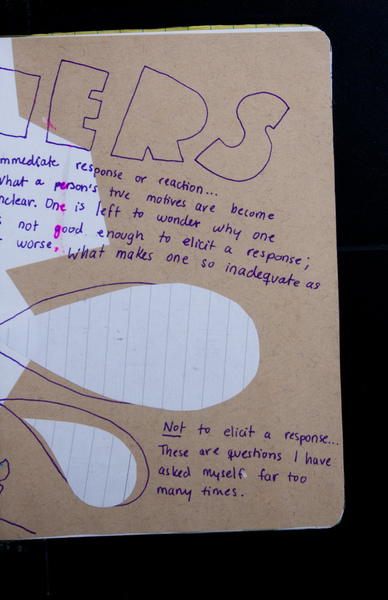 ERS
mmediate response or reaction...
what a person's true motives are become
nclear. One is left to wonder why one
s not good enough to elicit a response;
r worse, What makes one so inadequate as
Not to elicit a response...
These are questions I have
asked myself far too
many times.